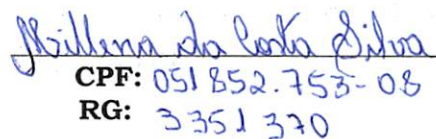 Millena da Costa Silva
CPF: 051852.753-08
RG: 3351370